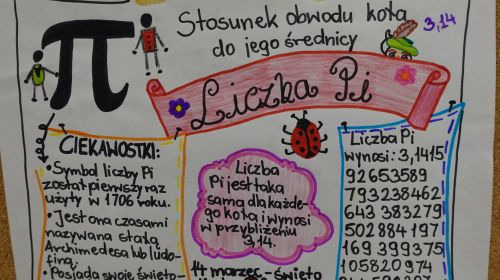 Stosunek obwodu koła
do jego średnicy
3,14
Liczba Pi
CIEKAWOSTKI:
• Symbol liczby Pi
został pierwszy raz
użyty w 1706 roku.
• Jest ona czasami
nazywana stałą
Archimedesa lub ludo-
finą;
• Posiada swoje święto-
Liczba
Pi jest taka
sama dla każde-
go koła i wynosi
w przybliżeniu
3,14.
14 marzec - święto
Liczba Pi
wynosi: 3,1415
92653589
793238462
643 383279
502884197
169 399375
105820974